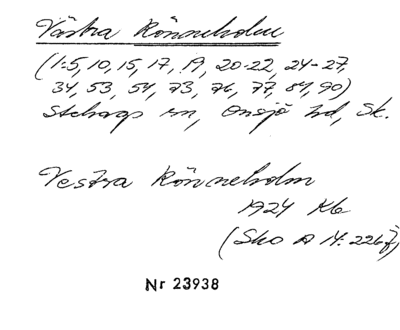 Västra Rönneholm
(1:5, 10, 15, 17, 19, 20-22, 24-27,
34, 53, 54, 73, 76, 77, 84, 90)
Stehags sn, Onsjö hd, Sk.
Vestra Rönneholm
1924 Kb
(Sko A 14: 226 f)
Nr 23938